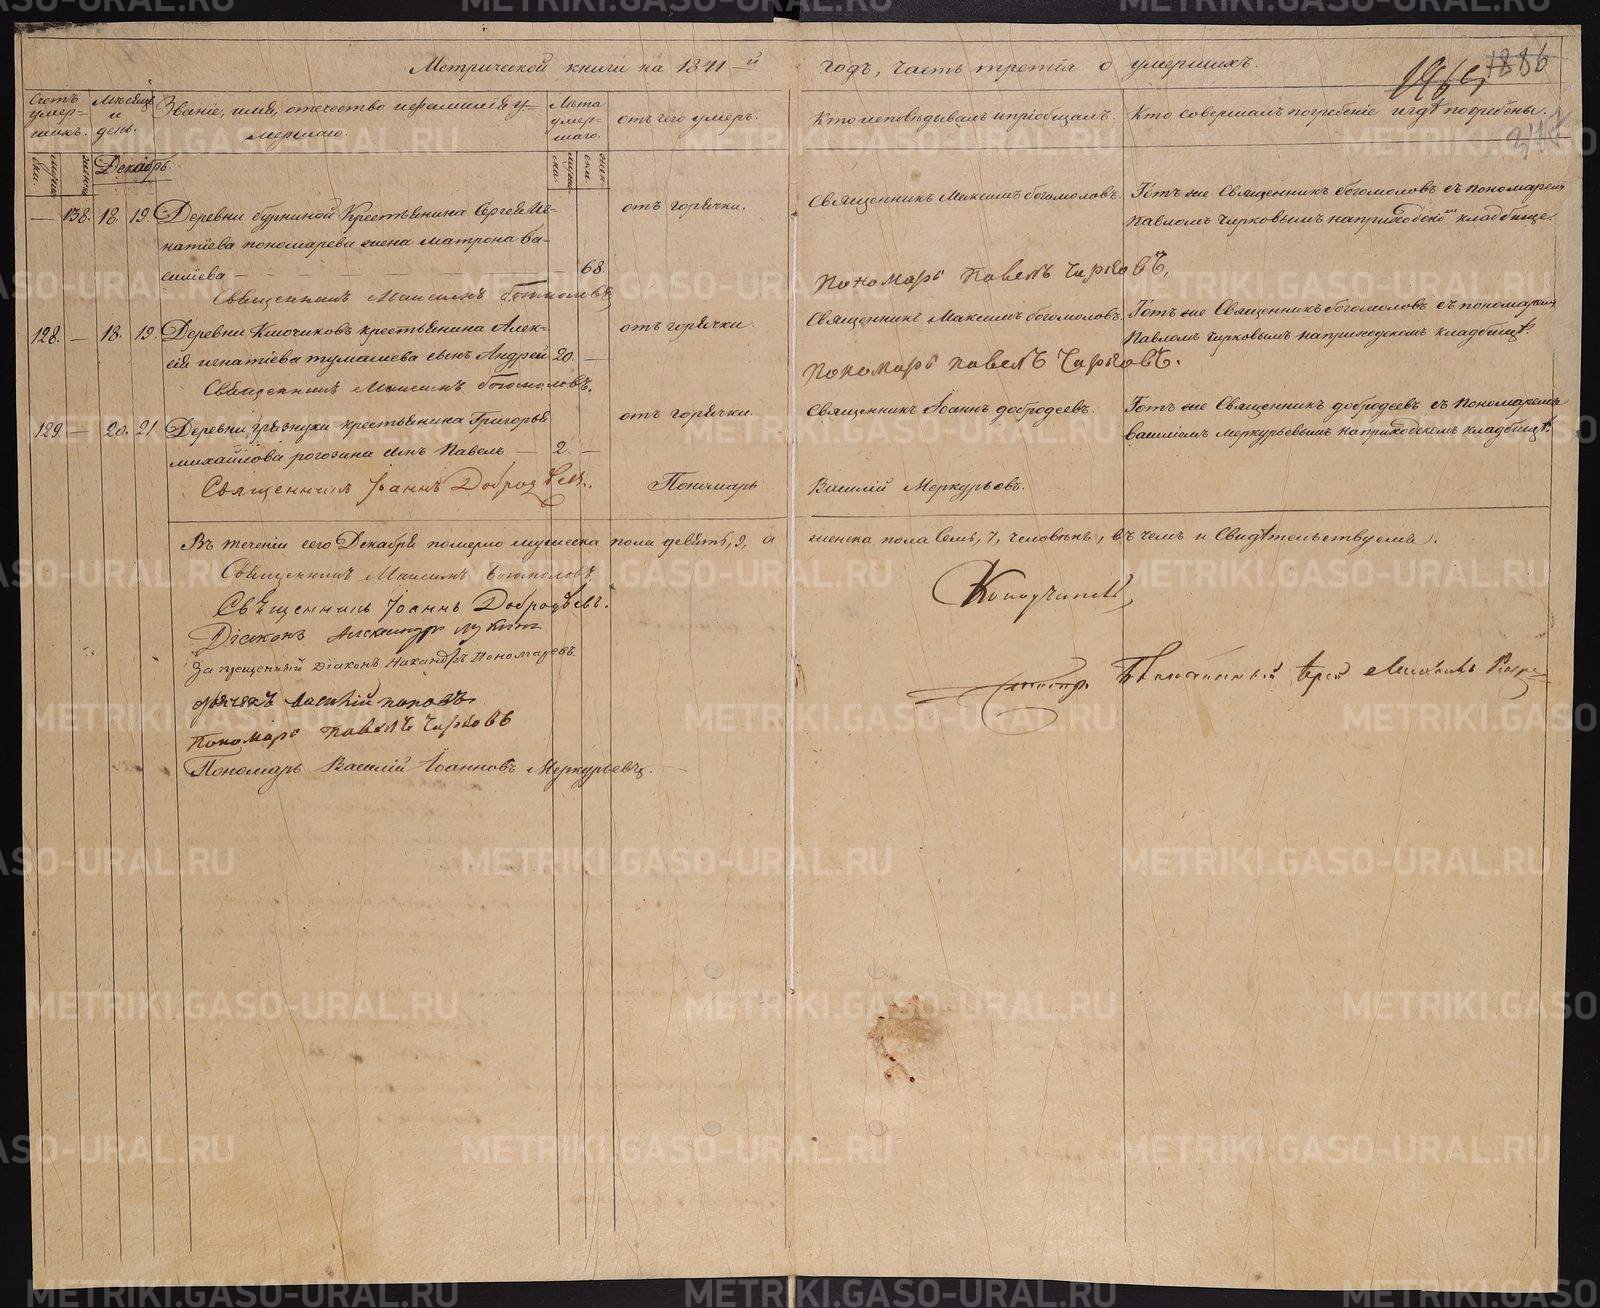 Метрической книги на 1841-й годъ, часть третія о умершихъ.
1886
Счетъ умер-шихъ.
Мѣсяцъ и день.
Званіе, имя, отечество и фамилія умершаго.
Лѣта умер-шаго.
отъ чего умеръ.
Кто исповѣдывалъ и пріобщалъ.
Кто совершалъ погребеніе и гдѣ погребены.
Декабрь.
— 138. 18. 19. Деревни Бурниной Крестьянина Сергея Иг-
натіева пономарева жена матрона Ва-
силіева — 68.
отъ горячки.
Священникъ Максимъ богомоловъ.
Тотъ же Священникъ богомоловъ съ пономаремъ
Павломъ Чирковымъ на приходском кладбище.
Священникъ Максимъ Богомоловъ
Пономарь Павелъ Чирковъ.
128. — 18. 19. Деревни Ключиковъ крестьянина Алек-
сія игнатіева тумашева сынъ Андрей 20. —
отъ горячки.
Священникъ Максимъ богомоловъ.
Тотъ же Священникъ богомоловъ съ пономаремъ
Павломъ Чирковымъ на приходскомъ кладбищѣ.
Священникъ Максимъ Богомоловъ.
Пономарь Павелъ Чирковъ.
129 — 20. 21. Деревни грязнухи крестьянина Григорья
михайлова рогозина сынъ Павелъ — 2. —
отъ горячки.
Священникъ Іоаннъ добродеевъ.
Тотъ же Священникъ добродеевъ съ Пономаремъ
Василіемъ Меркурьевымъ на приходскомъ кладбищѣ.
Священникъ Іоаннъ Добродѣевъ.
Пономарь Василій Меркурьевъ.
Въ теченіи сего Декабря померло мужеска пола девять, 9, а женска пола Семь, 7, человѣкъ, въ чемъ и Свидѣтельствуемъ.
Священникъ Максимъ Богомоловъ
Священникъ Іоаннъ Добродѣевъ.
Діаконъ Александръ Лукинъ
Запрещенный Діаконъ Никандръ Пономаревъ.
дьячекъ Василій поповъ
Пономарь Павелъ Чирковъ
Пономарь Василій Іоанновъ Меркурьевъ.
METRIKI.GASO-URAL.RU